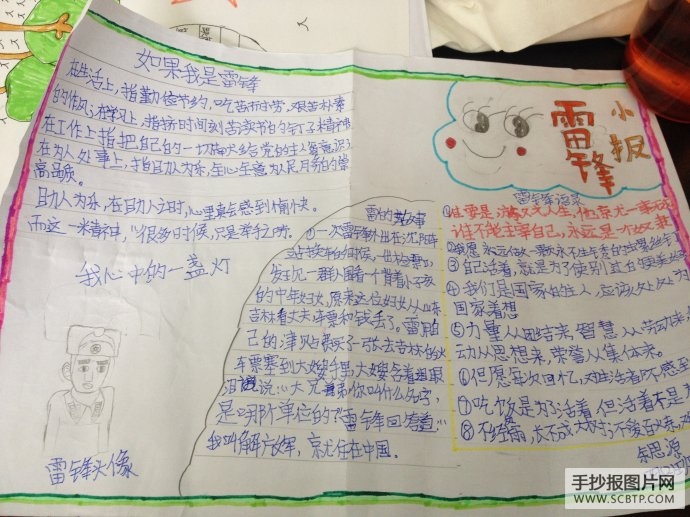 如果我是雷锋
在生活上,指勤俭节约,吃苦耐劳、艰苦朴素
的作风;在学习上,指挤时间刻苦读书的钉子精神
在工作上指把自己的一切
在为人处事上,指助人为乐,全心全意为人民服务的崇
高品质。
助人为乐,在助人之时,心里真会感到愉快。
而这一米精神,"很多时候,只是举手之劳。
我心中的一盏灯
雷锋头像
雷的故事
①一次雷锋外出在沈阳
站
发现一群人围着一个背着小孩
的中年妇女,原来这位妇女从山东
吉林看丈夫车票和钱丢了。雷用自
己的津贴费买了一张去吉林的火
车票塞到大嫂手里,大嫂含着眼
泪说:“大兄弟你叫什么名字,
是哪个单位的?”雷锋回答道:
我叫解放军,就住在中国。
雷锋
小报
雷锋语录
①谁要是游戏人生,他就一事无成
谁不能主宰自己,永远是一个奴隶
②我愿永远做一颗永不生锈的螺丝钉
③自己活着,就是为了使别
④我们是国家的主人,应该处处为
国家着想
⑤力量从团结来,智慧从劳动来
动从思想来,荣誉从集体来。
⑥但愿每次回忆,对生活都不感到
⑦吃饭是为了活着,但活着不是
⑧不经风雨,长不成大树;不
朱思源
手抄报图片网
WWW.SCBTP.COM